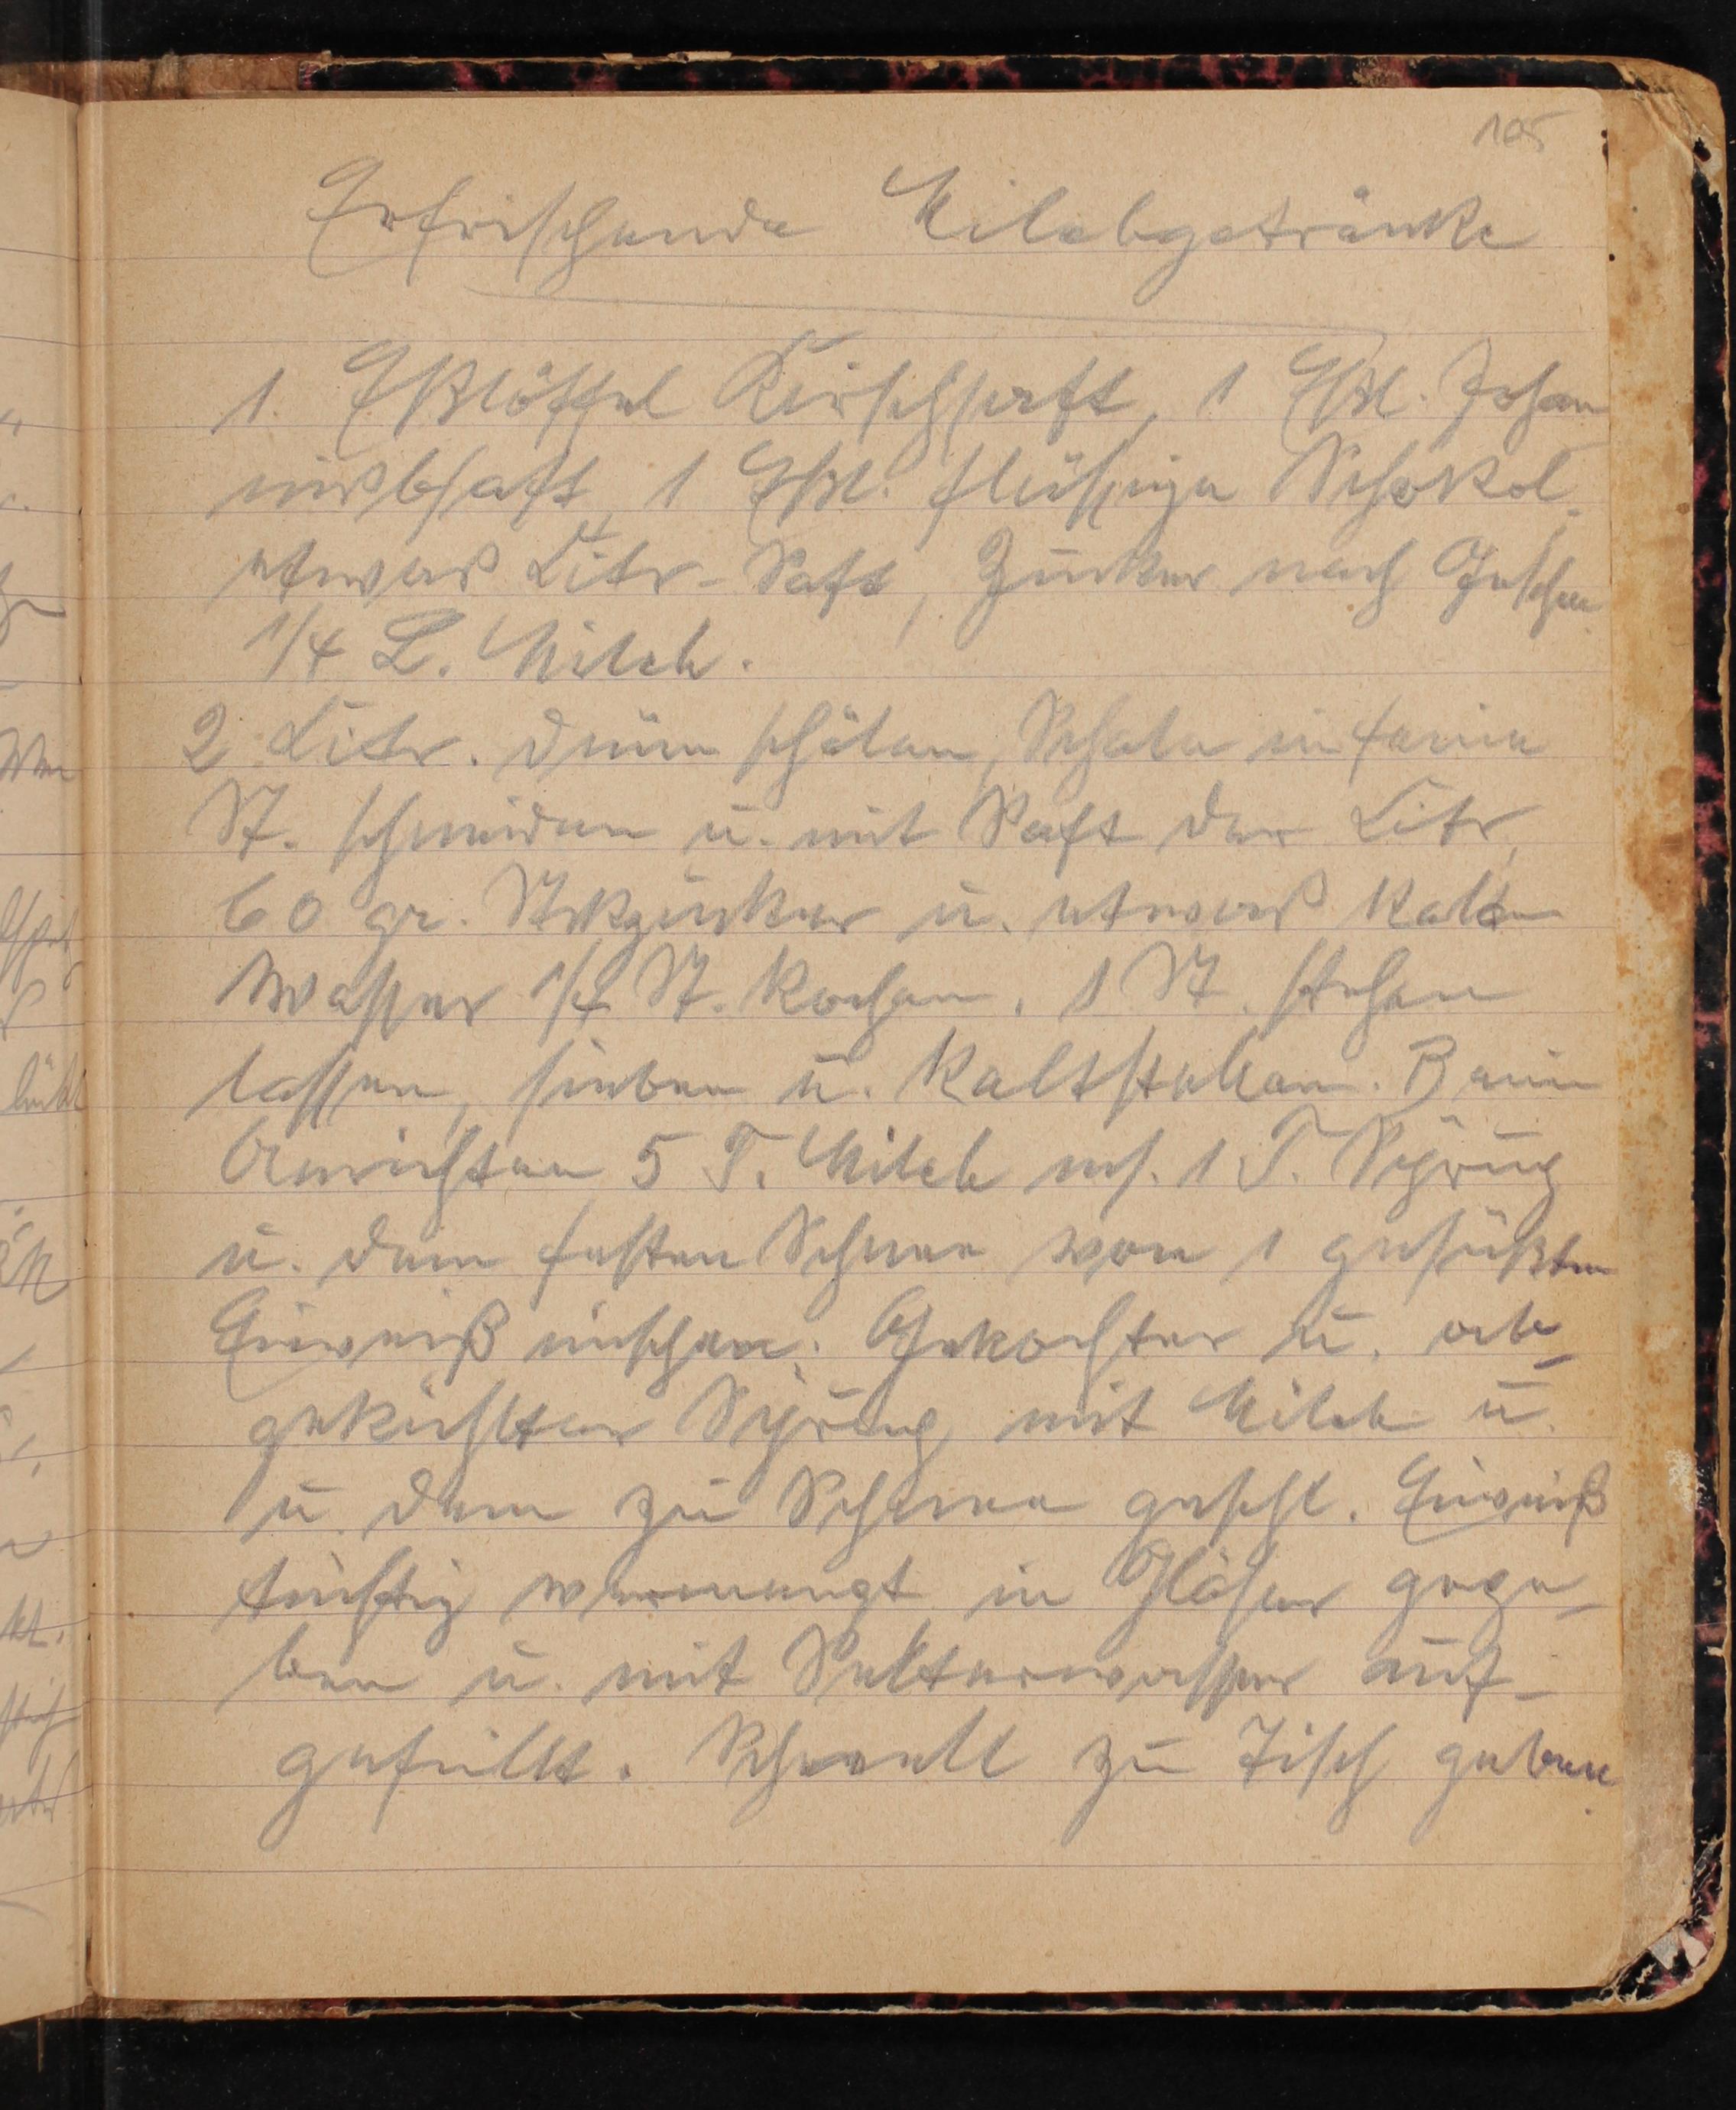 105
Erfrischende Milchgetränke
1. Eßlöffel Kirschsaft, 1 Eßl. Johan
nisbsaft, 1 Eßl. flüssige Schokol.
etwas Zitr-Saft, Zucker nach Geschm
1/4 L. Milch.
2 Zitr. dünn schälen, Schale in feine
St. schneiden u. mit Saft der Zitr,
60 gr. Stkzucker u. etwas kaltem
Wasser 1/4 St. kochen. 1 St. stehen
lassen, sieben u. kaltstellen. Beim
Anrichten 5 T. Milch m. 1 T. Syrup
u. dem festen Schnee von 1 gesüßten
Eiweiß mischen. Gekochter u. ab-
gekühlter Syrup mit Milch u.
u. dem zu Schnee geschl. Eiweiß
tüchtig vermengt in Gläser gege-
ben u. mit Selterwasser auf-
gefüllt. Schnell zu Tisch geben